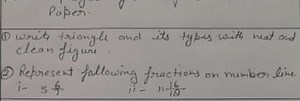 Paper.
① Write triangle and its types with neat and
clean figure.
② Represent following fractions on number line
i- 5 6/7 ii- 11 16/19